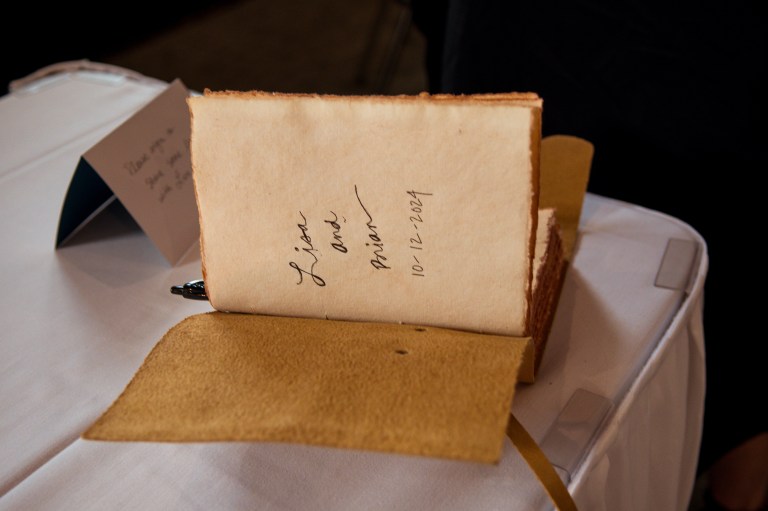 Please sign &
Lisa
and
Brian
10-12-2024